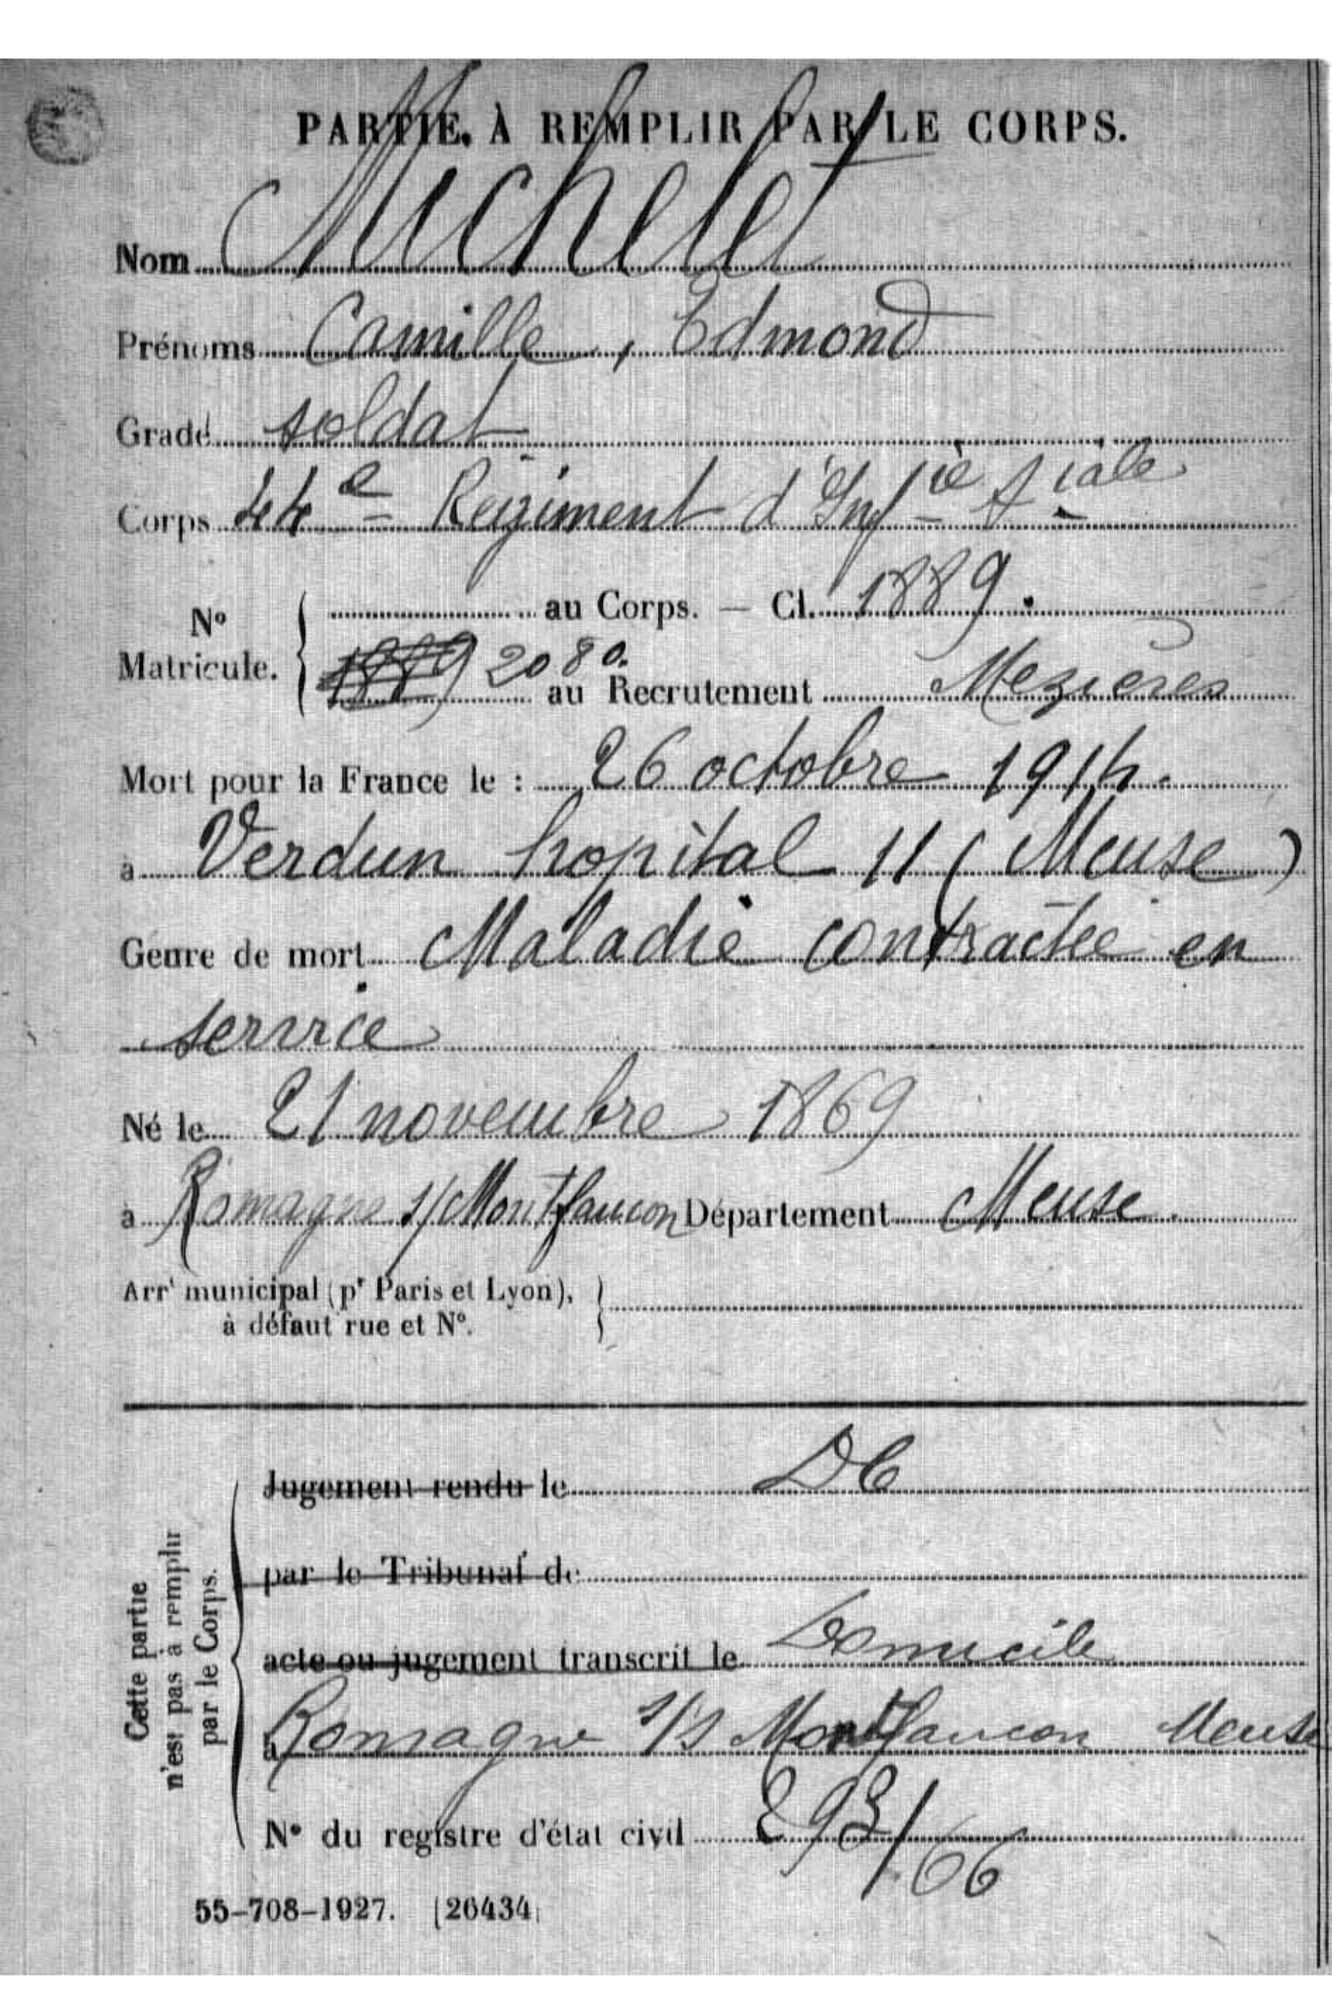 PARTIE À REMPLIR PAR LE CORPS.
Nom Michelet
Prénoms Camille, Edmond
Grade soldat
Corps 44e Régiment d'Infie tiale
N° Matricule. { au Corps. — Cl. 1889.
1889 2080. au Recrutement Mezières
Mort pour la France le : 26 octobre 1914.
à Verdun hopital 11 (Meuse)
Genre de mort Maladie contractée en
service
Né le 21 novembre 1869
à Romagne s/Montfaucon Département Meuse.
Arrt municipal (pr Paris et Lyon), }
à défaut rue et N°.
Cette partie
n'est pas à remplir
par le Corps.
Jugement rendu le DC
par le Tribunal de
acte ou jugement transcrit le Domicile
à Romagne s/s Montfaucon Meuse
N° du registre d'état civil 293/66
55-708-1927. [26434]